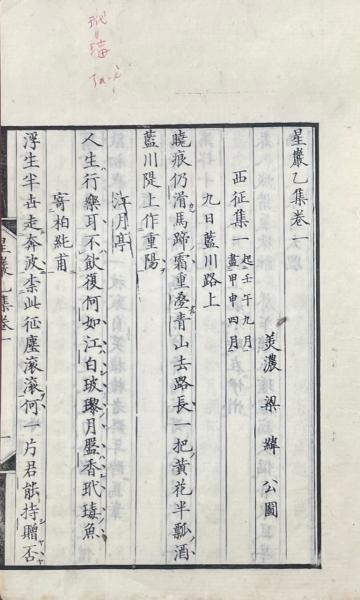 玳瑁
星巖乙集卷一
美濃 梁緯 公圖
西征集一 起壬午九月盡甲申四月
九日藍川路上
曉痕仍滑馬蹄霜重疊青山去路長一把黃花半瓢酒
藍川隄上作重陽
江月亭
人生行樂耳不飲復何如江白玻瓈月盤香玳瑇魚
寄柏純甫
浮生半世走奔波柰此征塵滾滾何一片君能持贈否
星巖乙集卷一